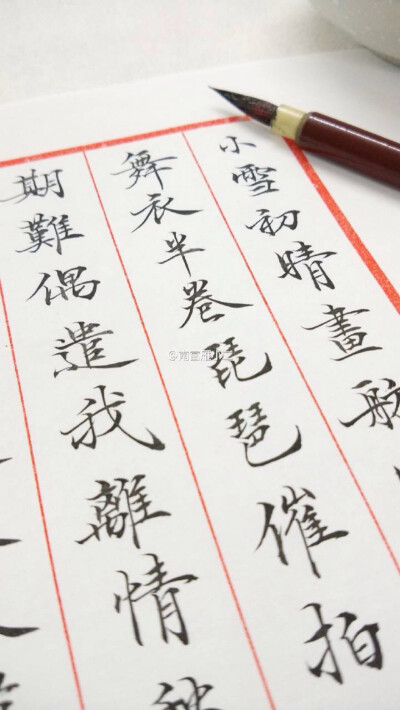 小雪初晴畫舫
舞衣半卷琵琶催拍
期難偶遣我離情